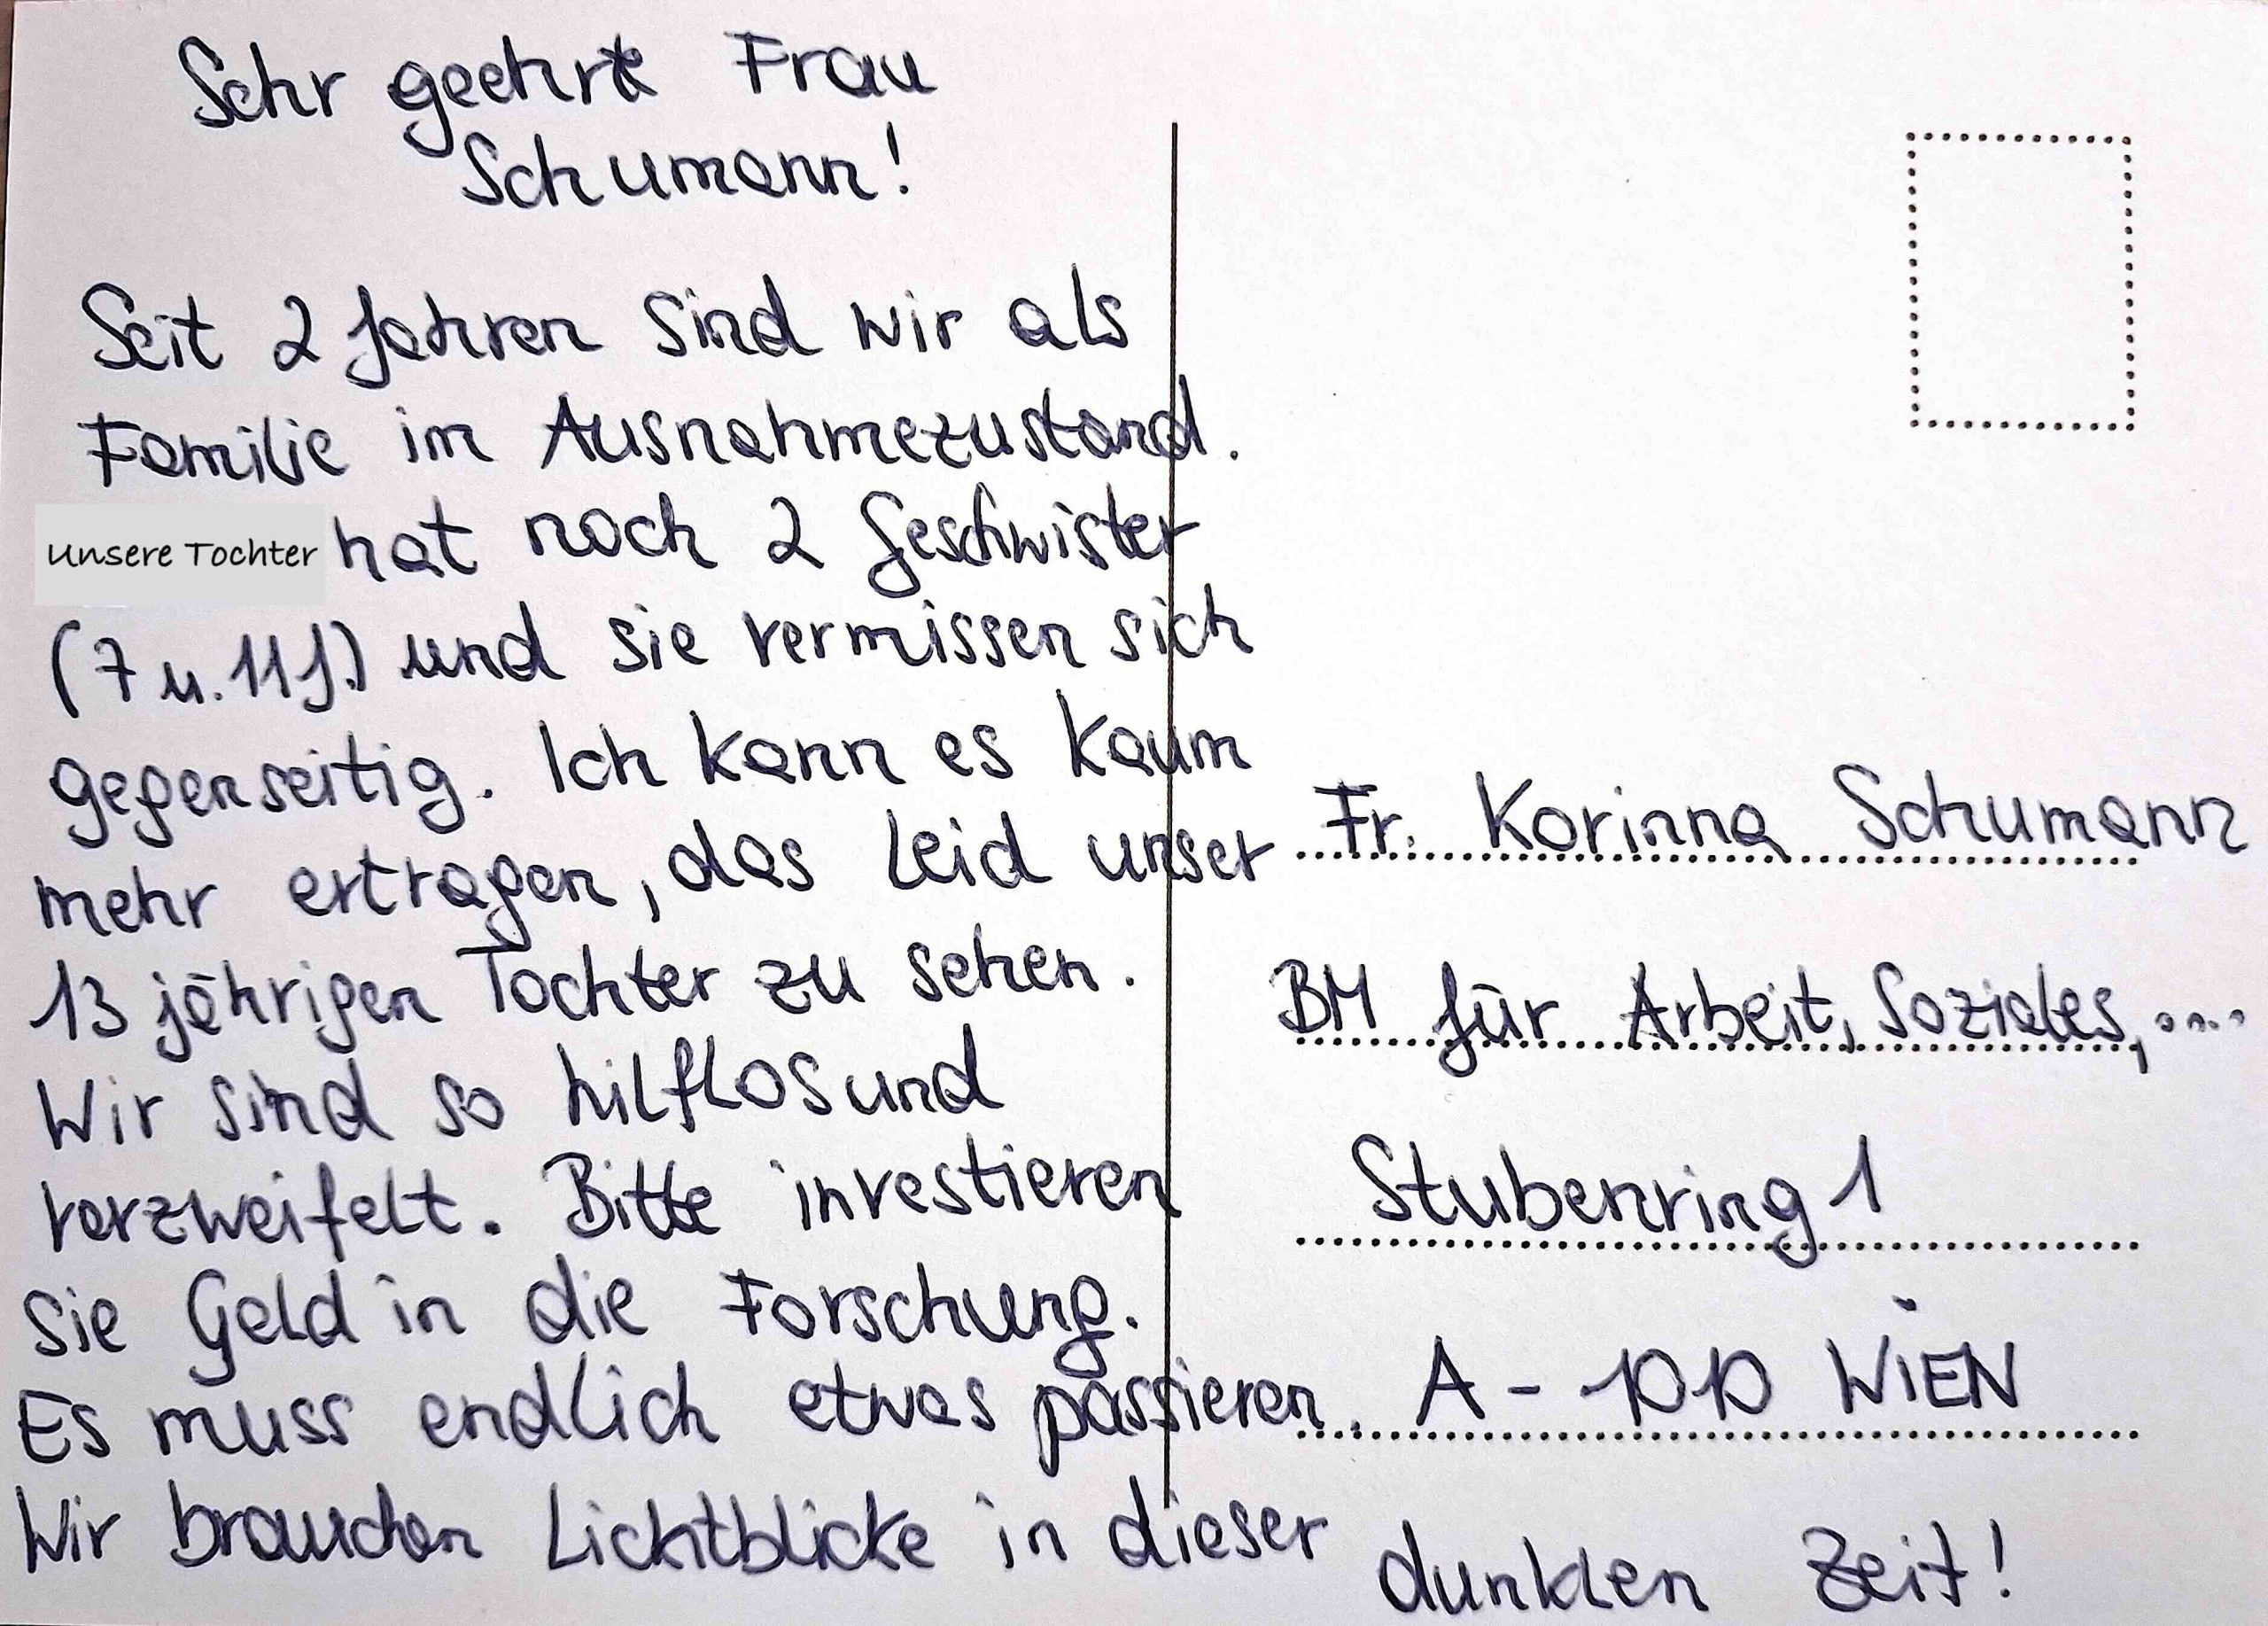 Sehr geehrte Frau
Schumann!
Seit 2 Jahren sind wir als
Familie im Ausnahmezustand.
Unsere Tochter hat noch 2 Geschwister
(7 u. 11 J.) und sie vermissen sich
gegenseitig. Ich kann es kaum
mehr ertragen, das Leid unser
13 jährigen Tochter zu sehen.
Wir sind so hilflos und
verzweifelt. Bitte investieren
Sie Geld in die Forschung.
Es muss endlich etwas passieren.
Wir brauchen Lichtblicke in dieser dunklen Zeit!
Fr. Korinna Schumann
BM für Arbeit, Soziales, ....
Stubenring 1
A - 1010 WIEN